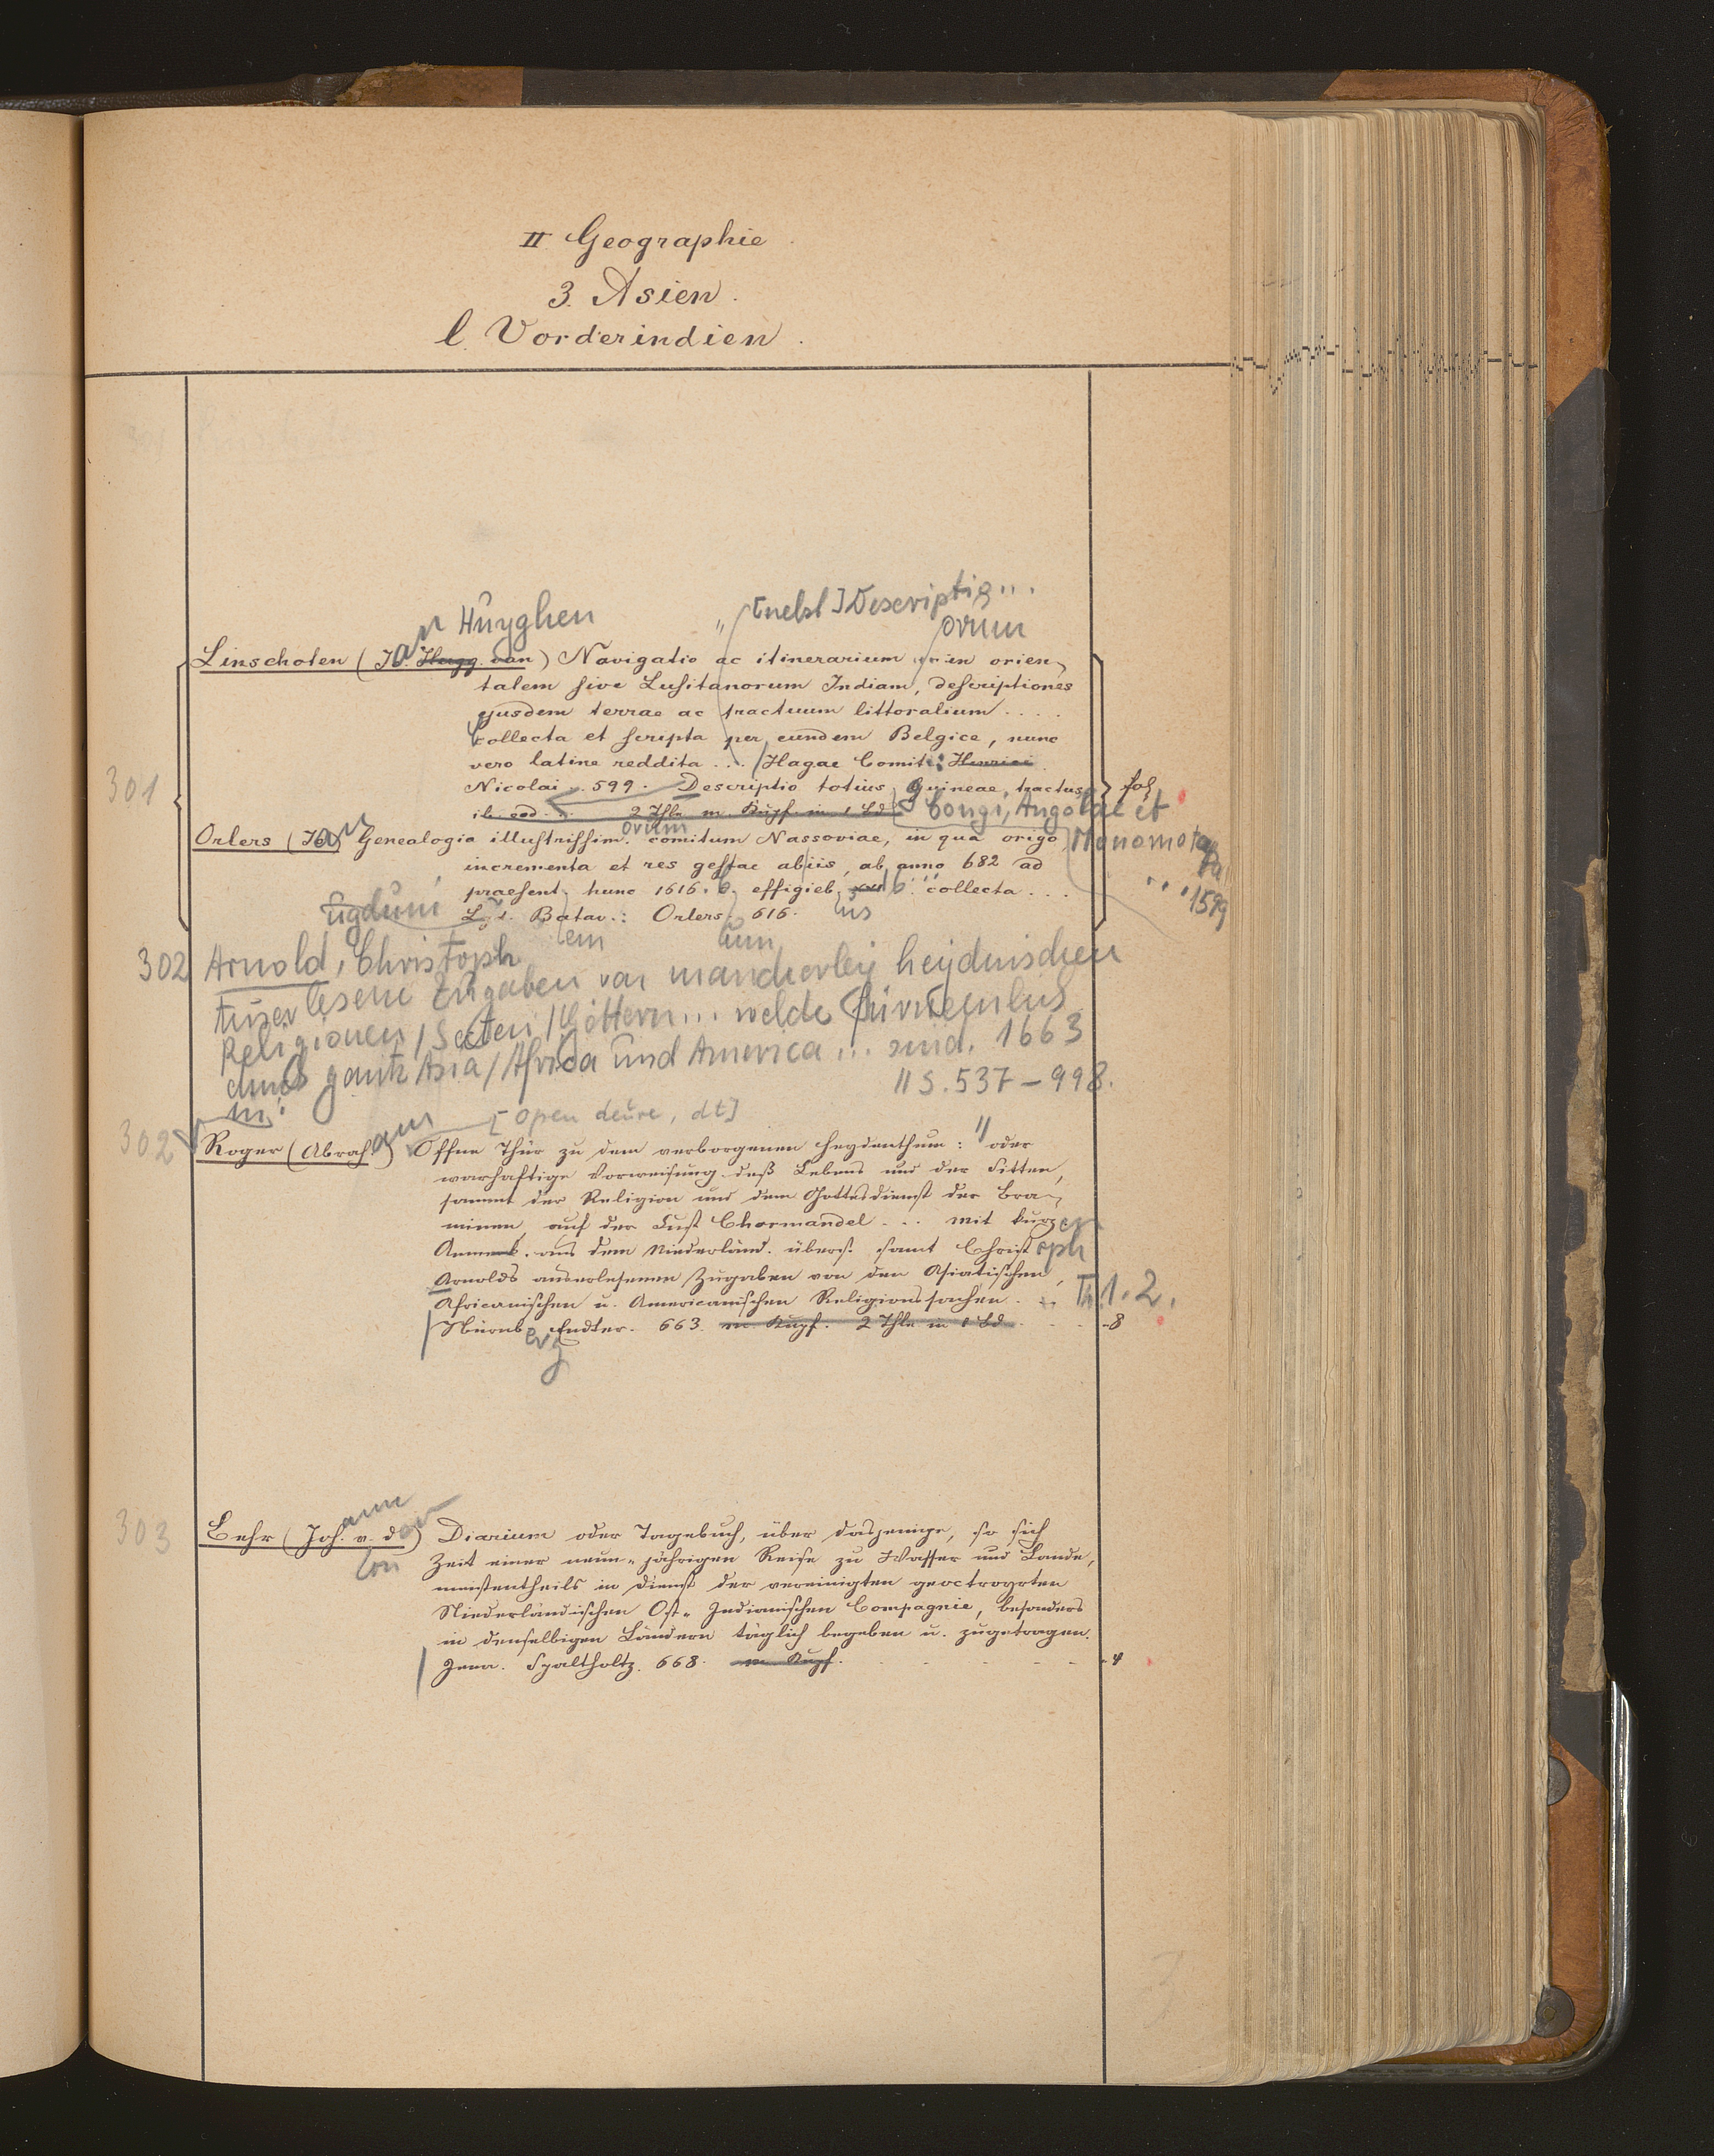 II Geographie
3. Asien.
l. Vorderindien.
Huyghen [nebst] Descriptio...
ovum
301
Linschoten (Jan Hugg. van) Navigatio ac itinerarium in orien-
talem sive Lusitanorum Indiam, descriptiones
ejusdem terrae ac tractuum littoralium . . . .
collecta et scripta per eundem Belgice, nunc
vero latine reddita ... Hagae Comit: Henrici
Nicolai. 599. Descriptio totius Guineae, tractus fol
ib. eod. 2 Thle m. Kupf. in 1 Bd Congi, Angolae et
Monomotapa
... 1599
Orlers (Jan) Genealogia illustrissim. orum comitum Nassoviae, in qua origo
incrementa et res gestae ab iis, ab anno 682 ad
praesent. hunc 1616. effigieb. collecta ...
Lugd. Batav.: Orlers. 616.
ugduni em ium us
302 Arnold, Christoph
Auserlesene Zugaben von mancherley heydnischen
Religionen / Secten / Göttern ... welche
durch gantz Asia / Africa und America ... sind. 1663
in: 11 S. 537-998.
[Open deure, dt]
302 Roger (Abraham) Offne Thür zu dem verborgenen Heydenthum: oder
warhaftige Vorweisung deß Lebens und der Sitten,
sammt der Religion und dem Gottesdienst der Bra-
minen, auf der Cust Chormandel ... mit kurzen
Anmerk. aus dem Niederländ. übers. samt Christoph
Arnolds auserlesenen Zugaben von den Asiatischen,
Africanischen u. Americanischen Religionssachen. Th 1. 2.
Nürnberg Endter. 663. m. Kupf. 2 Thle in 1 Bd. - - - 8
303 Behr (Johann von der) Diarium oder Tagebuch, über dasjenige, so sich
Zeit einer neun-jährigen Reise zu Wasser und Lande,
meistentheils in Dienst der vereinigten geoctroyrten
Niederländischen Ost-Indianischen Compagnie, besonders
in denselbigen Ländern täglich begeben u. zugetragen.
Jena. Spaltholtz. 668. m Kupf. - - - - - 4